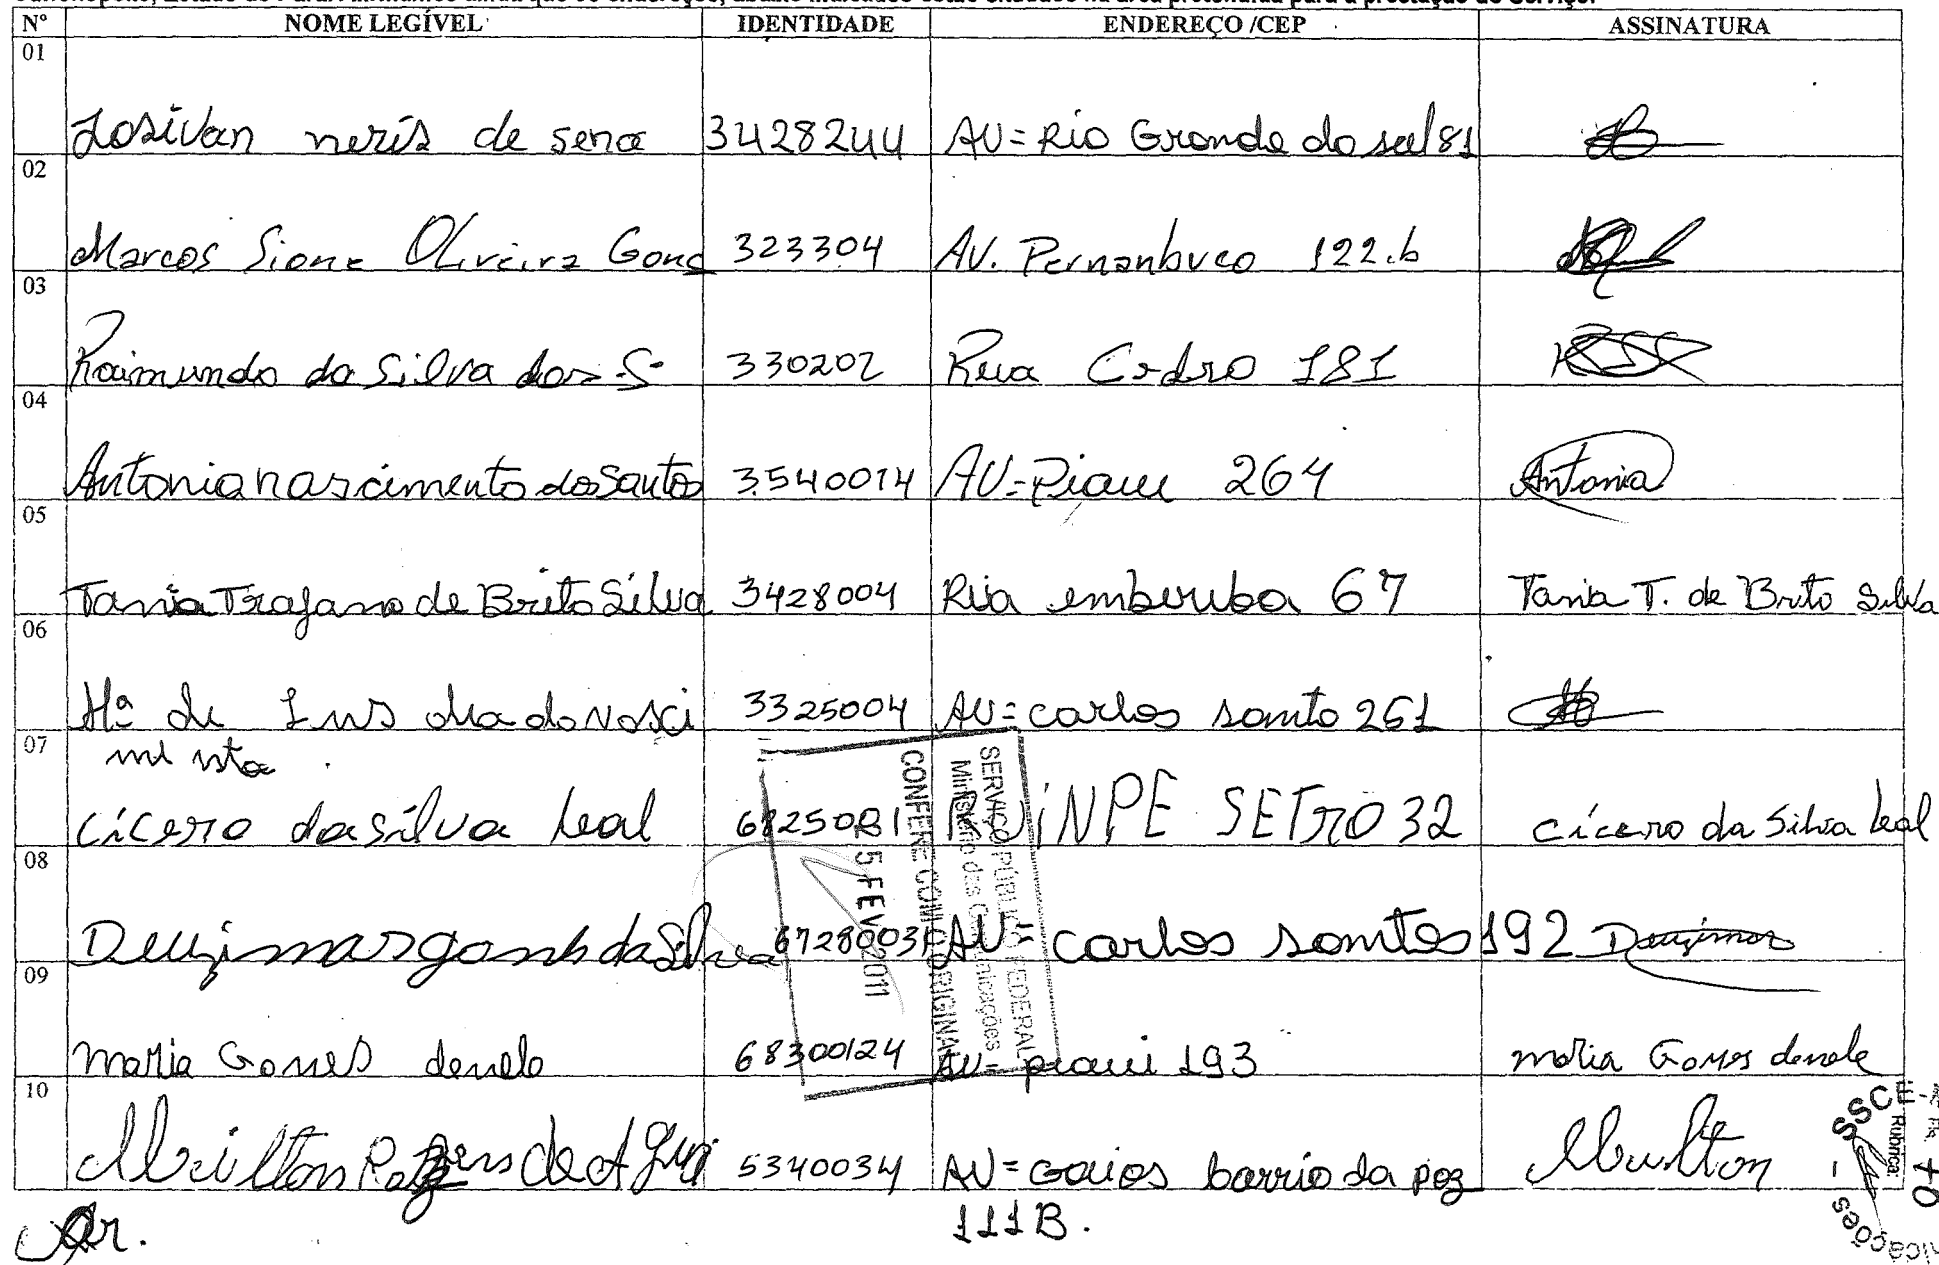 Nº NOME LEGÍVEL IDENTIDADE ENDEREÇO /CEP ASSINATURA
01
Josivan neris de sena 3428244 AV= Rio Grande do sul 81
02
Marcos Sione Oliveira Gonç 323304 AV. Pernanbuco 122.b
03
Raimundo da Silva dos S 330202 Rua Cedro 181
04
Antonia nascimento dos Santos 3540014 AV= Piaui 264 Antonia
05
Tania Trajano de Brito Silva 3428004 Rua emberuba 67 Tania T. de Brito Silva
06
Mª de 3325004 AV= carlos santo 261
07
mento
Cícero da silva leal R JiNPE SETRO 32 cícero da Silva leal
08
Deuzimar da Silva 6728003 AV= carlos santos 192 Deuzimar
09
maria Gomes 68300124 AV= piaui 193 maria Gomes
10
de Agui 5340034 AV= Goias barrio da paz
ar. 111B.
SERVIÇO PÚBLICO FEDERAL
Ministério das Comunicações
CONFERE COM O ORIGINAL
5 FEV 2011
SSCE
Rubrica